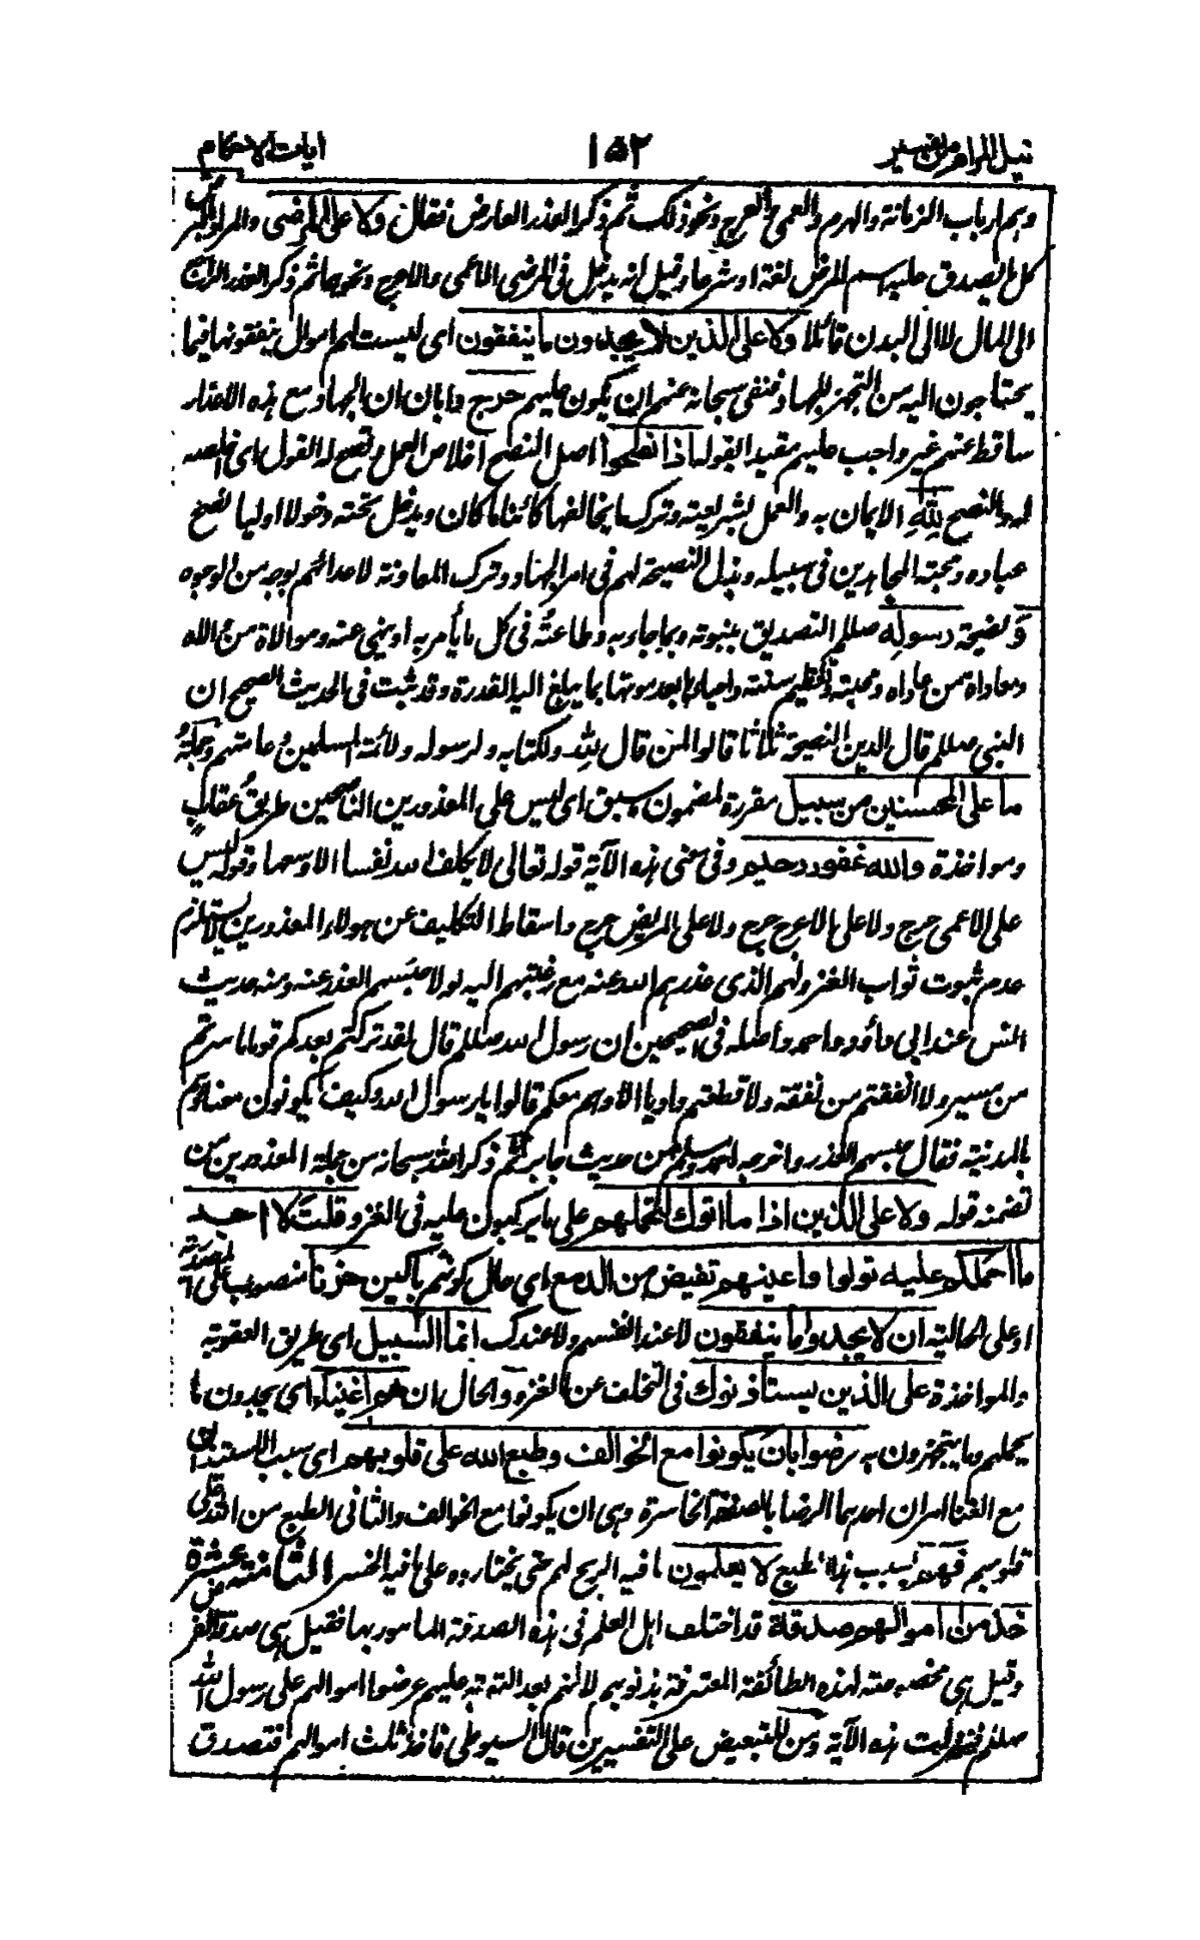 نيل المرام من تفسير ١٥٢ ايات الاحكام
وهم ارباب الزمانة والهرم والعمى والعرج ونحو ذلك ثم ذكر العذر العارض فقال ولا على المرضى والمراد بالمرض
كل ما يصدق عليه اسم المرض لغة او شرعا وقيل انه يدخل فى المرضى الاعمى والاعرج ونحوهما ثم ذكر العذر الراجع
الى المال لا الى البدن قائلا ولا على الذين لا يجدون ما ينفقون اى ليست لهم اموال ينفقونها فيما
يحتاجون اليه من التجهز للجهاد فنفى سبحانه عنهم ان يكون عليهم حرج وابان ان الجهاد مع هذه الاعذار
ساقط عنهم غير واجب عليهم مقيد القوله اذا نصحوا اصل النصح اخلاص العمل ونصح له القول اى اخلصه
له والنصح لله الايمان به والعمل بشريعته وترك ما يخالفها كائنا ما كان ويدخل تحته دخولا اوليا نصح
عباده ومحبة المجاهدين فى سبيله وبذل النصيحة لهم فى امر الجهاد وترك المعاونة لاعدائهم بوجه من الوجوه
ونصيحة رسوله صللم التصديق بنبوته وبما جاء به وطاعته فى كل ما يأمر به او ينهى عنه وموالاة من والاه
ومعاداة من عاداه ومحبته وتعظيم سنته واحياءها بعد موتها بما يبلغ اليه القدرة وقد ثبت فى الحديث الصحيح ان
النبى صللم قال الدين النصيحة ثلاثا قالوا لمن قال لله ولكتابه ولرسوله ولائمة المسلمين وعامتهم وجملة
ما على المحسنين من سبيل مقررة لمضمون ما سبق اى ليس على المعذورين الناصحين طريق عقاب
ومواخذة والله غفور رحيم وفى معنى هذه الآية قوله تعالى لا يكلف الله نفسا الا وسعها وقوله ليس
على الاعمى حرج ولا على الاعرج حرج ولا على المريض حرج واسقاط التكليف عن هولاء المعذورين لا يستلزم
عدم ثبوت ثواب الغزو لهم الذى عذرهم الله عنه مع رغبتهم اليه لولا حبسهم العذر عنه ومنه حديث
انس عند ابى داؤد واحمد واصله فى الصحيحين ان رسول الله صللم قال لقد تركتم بعدكم قوما ما سرتم
من مسير ولا انفقتم من نفقة ولا قطعتم واديا الا وهم معكم قالوا يا رسول الله وكيف يكونون معنا وهم
بالمدينة فقال حبسهم العذر واخرجه احمد ومسلم من حديث جابر ثم ذكر الله سبحانه من جملة المعذورين من
تضمنه قوله ولا على الذين اذا ما اتوك لتحملهم على ما يركبون عليه فى الغزو قلت لا اجد
ما احملكم عليه تولوا واعينهم تفيض من الدمع اى حال كونهم باكين حزنا منصوب على المصدرية
او على الحالية ان لا يجدوا ما ينفقون لا عند انفسهم ولا عندك انما السبيل اى طريق العقوبة
والمواخذة على الذين يستاذنونك فى التخلف عن الغزو والحال ان هم اغنياء اى يجدون ما
يحملهم وما يتجهزون به رضوا بان يكونوا مع الخوالف وطبع الله على قلوبهم اى سبب الاستيذان
مع الغنا امران احدهما الرضا بالصفقة الخاسرة وهى ان يكونوا مع الخوالف والثانى الطبع من الله على
قلوبهم فهم بسبب هذا الطبع لا يعلمون ما فيه الربح لهم حتى يختاروه على ما فيه الخسر الثامنة عشرة
خذ من اموالهم صدقة قد اختلف اهل العلم فى هذه الصدقة المامور بها فقيل هى صدقة الفرض
وقيل هى مخصوصة لهذه الطائفة المعترفة بذنوبهم لانهم بعد التوبة عليهم عرضوا اموالهم على رسول الله
صللم فنزلت هذه الآية ومن للتبعيض على التفسيرين قال السيوطى فاخذ ثلث اموالهم فتصدق